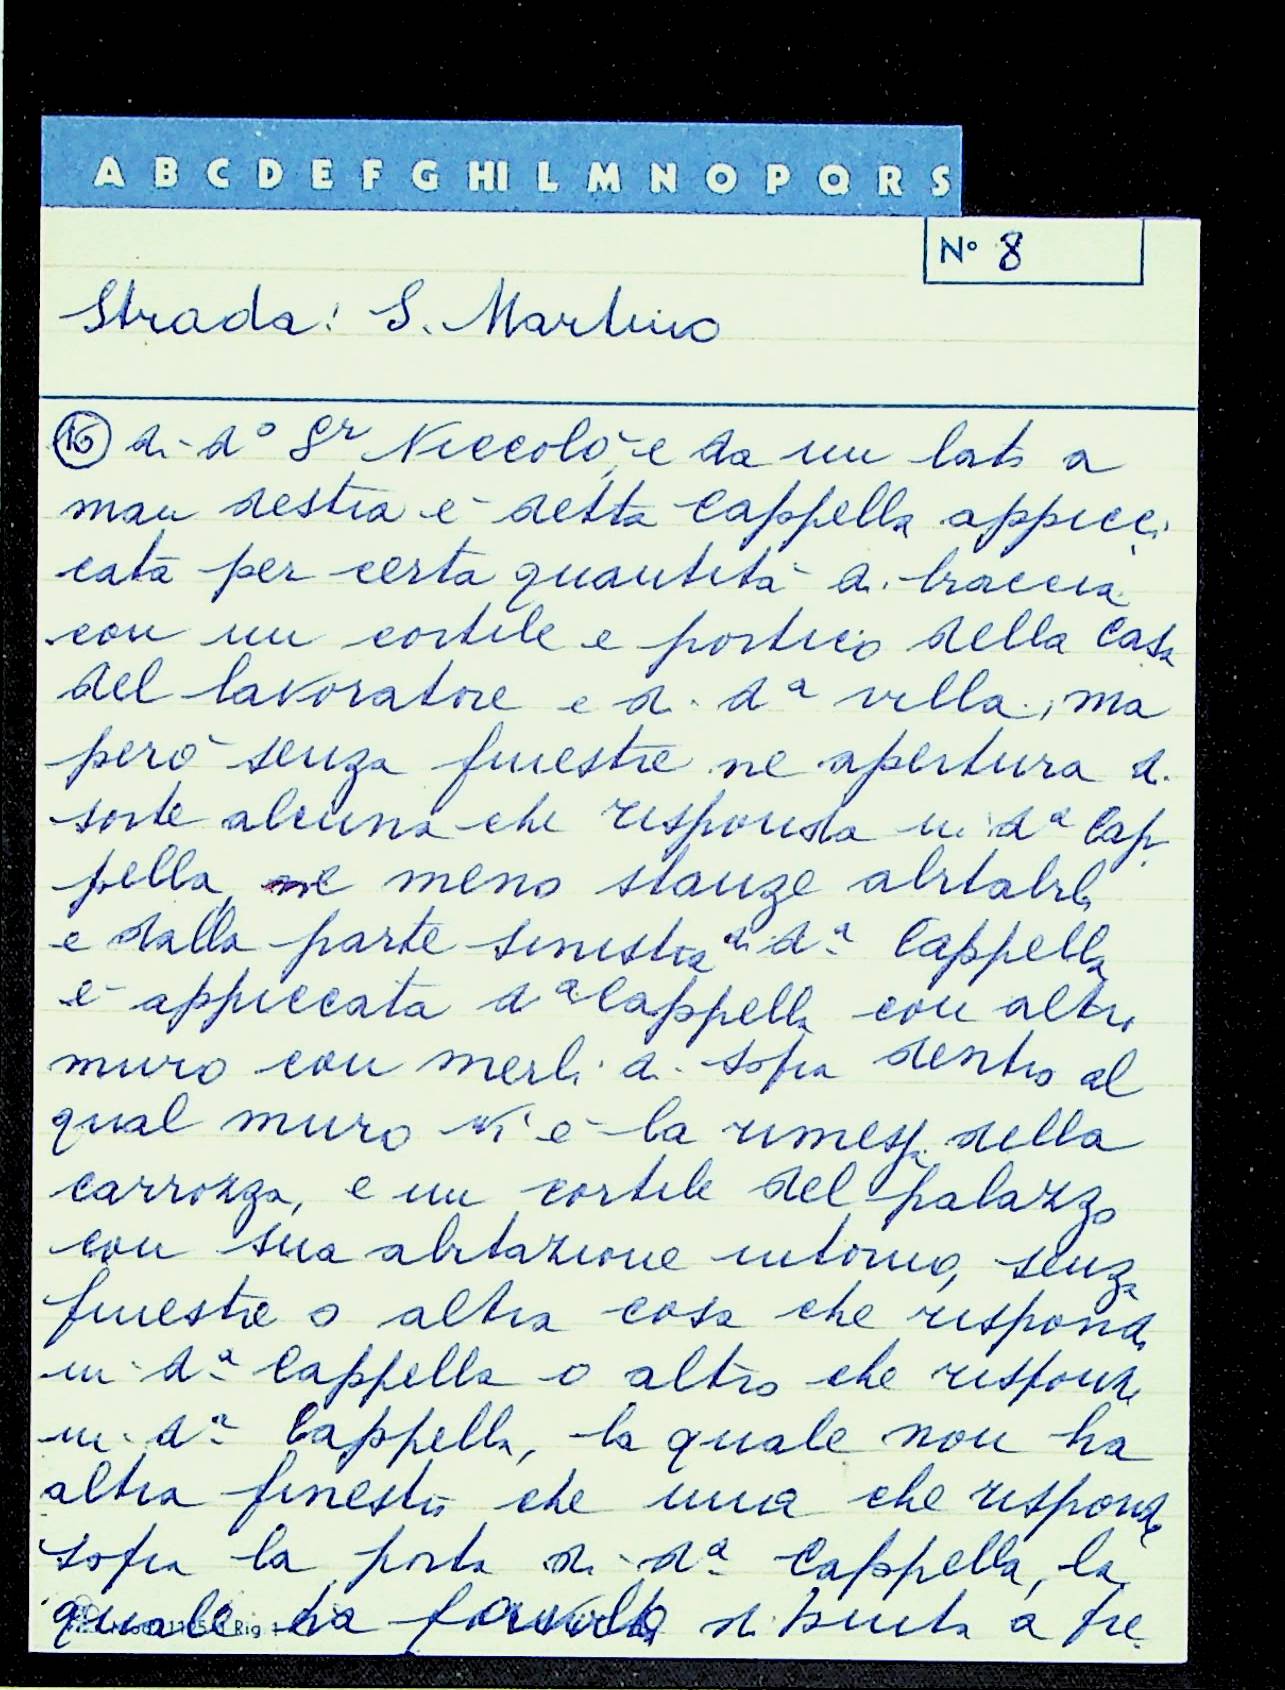 A B C D E F G HI L M N O P Q R S
N° 8
Strada: S. Martino
16 di dº Sr Niccolò, e da un lato a
man destra è detta Cappella appicci
cata per certa quantità di braccia
con un cortile e portico della Casa
del lavoratore e di dª villa, ma
però senza finestre ne apertura di
sorte alcuna che risponda in dª Cap
pella, ne meno stanze abitabili
e dalla parte sinistra di dª Cappella
è appiccata dª Cappella con altro
muro con merli di sopra dentro al
qual muro vi è la rimessa della
carrozza, e un cortile del palazzo
con sua abitazione intorno, senza
finestre o altra cosa che risponda
in dª Cappella o altro che risponda
in dª Cappella, la quale non ha
altra finestra che una che risponde
sopra la porta di dª Cappella, la
quale ha di tutta a tre